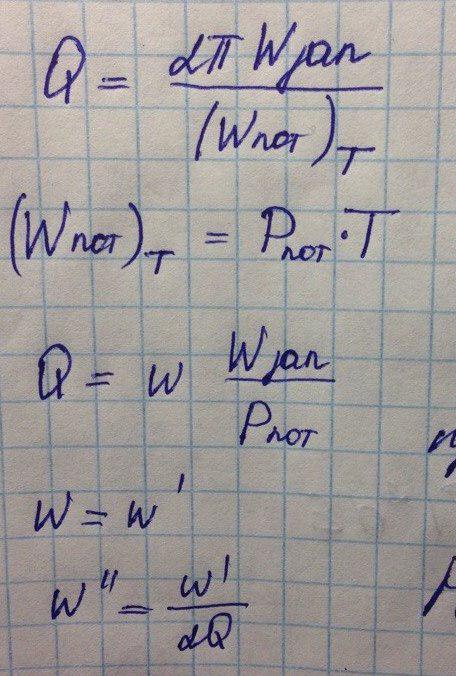 Q = 2π Wзап / (Wпот)T
(Wпот)T = Pпот · T
Q = w Wзап / Pпот
w = w'
w'' = w' / 2Q